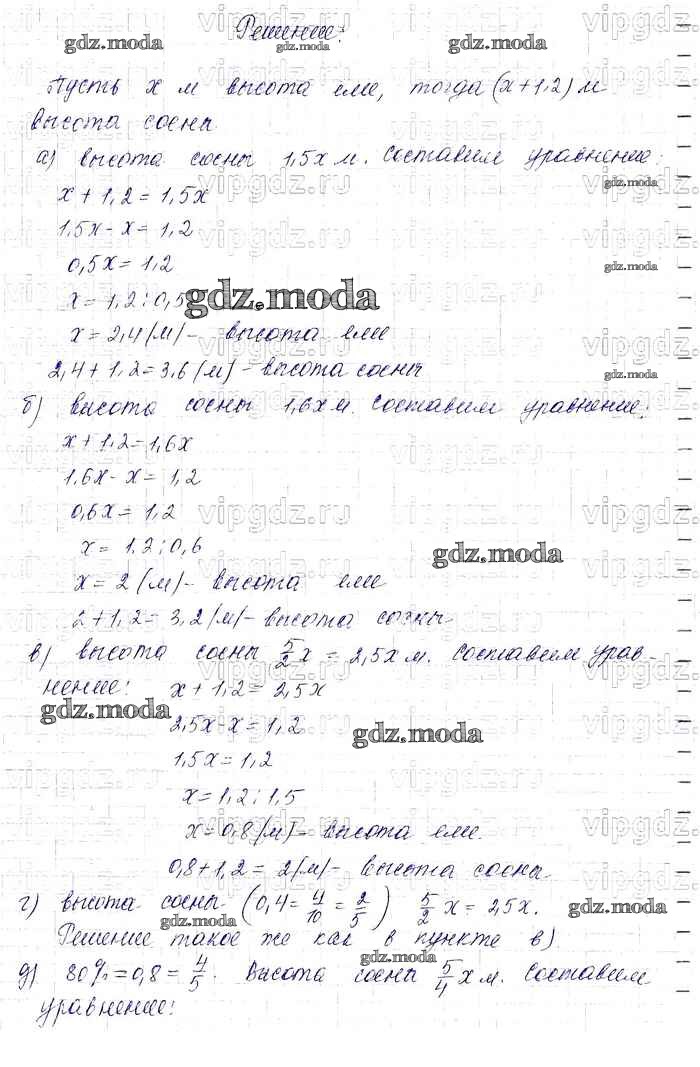 vipgdz.ru vipgdz.ru vipgdz
Решение:
gdz.moda gdz.moda gdz.moda
Пусть x м высота ели, тогда (x+1,2) м
высота сосны
а) высота сосны 1,5x м. Составим уравнение:
gdz.moda
x + 1,2 = 1,5x
1,5x - x = 1,2
0,5x = 1,2
gdz.moda
x = 1,2 : 0,5
gdz.moda
x = 2,4 (м) - высота ели
2,4 + 1,2 = 3,6 (м) - высота сосны
gdz.moda
б) высота сосны 1,6x м. Составим уравнение:
x + 1,2 = 1,6x
1,6x - x = 1,2
0,6x = 1,2
x = 1,2 : 0,6
gdz.moda
x = 2 (м) - высота ели
2 + 1,2 = 3,2 (м) - высота сосны
в) высота сосны 5/2 x = 2,5x м. Составим урав-
нение: x + 1,2 = 2,5x
gdz.moda
2,5x - x = 1,2
gdz.moda
1,5x = 1,2
x = 1,2 : 1,5
x = 0,8 (м) - высота ели.
0,8 + 1,2 = 2 (м) - высота сосны.
г) высота сосны (0,4 = 4/10 = 2/5) 5/2 x = 2,5x.
gdz.moda gdz.moda
Решение такое же как в пункте в)
д) 80% = 0,8 = 4/5. Высота сосны 5/4 x м. Составим
gdz.moda gdz.moda
уравнение:
gdz.moda